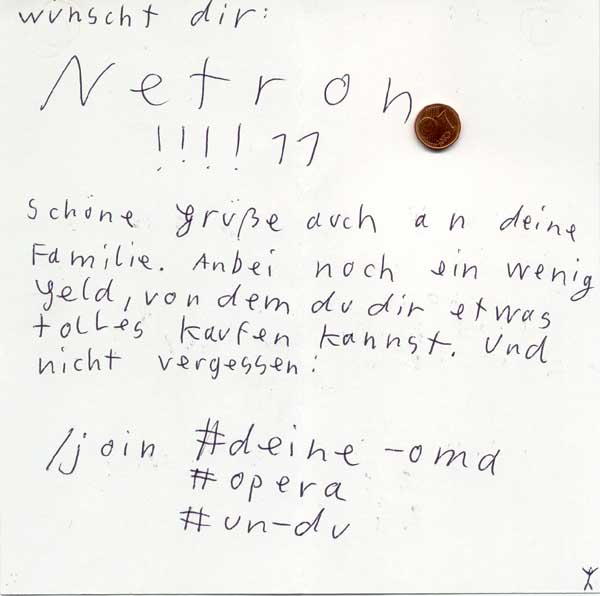 wünscht dir:
Netron
!!!!11
Schöne grüße auch an deine
Familie. Anbei noch ein wenig
geld, von dem du dir etwas
tolles kaufen kannst. Und
nicht vergessen:
/join #deine-oma
#opera
#un-du